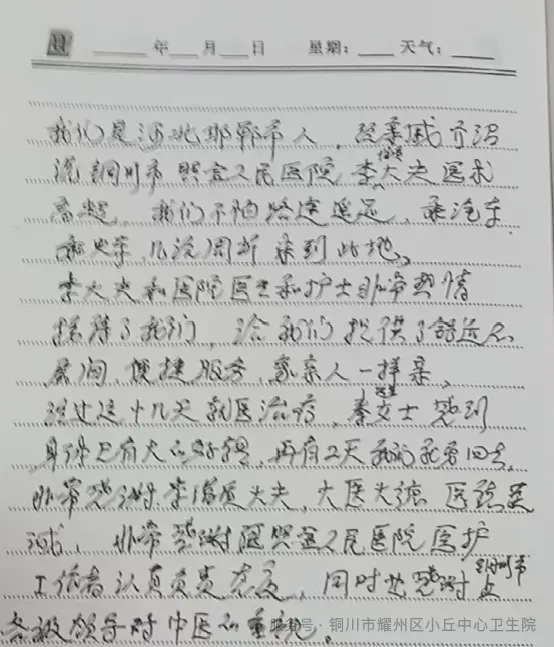 年 月 日 星期： 天气：
我们是河北邯郸市人，经亲戚介绍
说铜川市照金人民医院李大夫医术
高超，我们不怕路途遥远，乘汽车
和火车，几次周折来到此地。
李大夫和医院医生和护士非常热情
接待了我们，给我们提供了舒适的
房间，便捷服务，像亲人一样亲，
经过这十几天就医治疗，李女士感到
身体已有大的好转，再有2天我们就要回去，
非常感谢李 大夫，大医 医
诚，非常感谢照金人民医院医护
工作者认真负责态度，同时也感谢铜川市
各级领导对中医的重视。
铜川市耀州区小丘中心卫生院